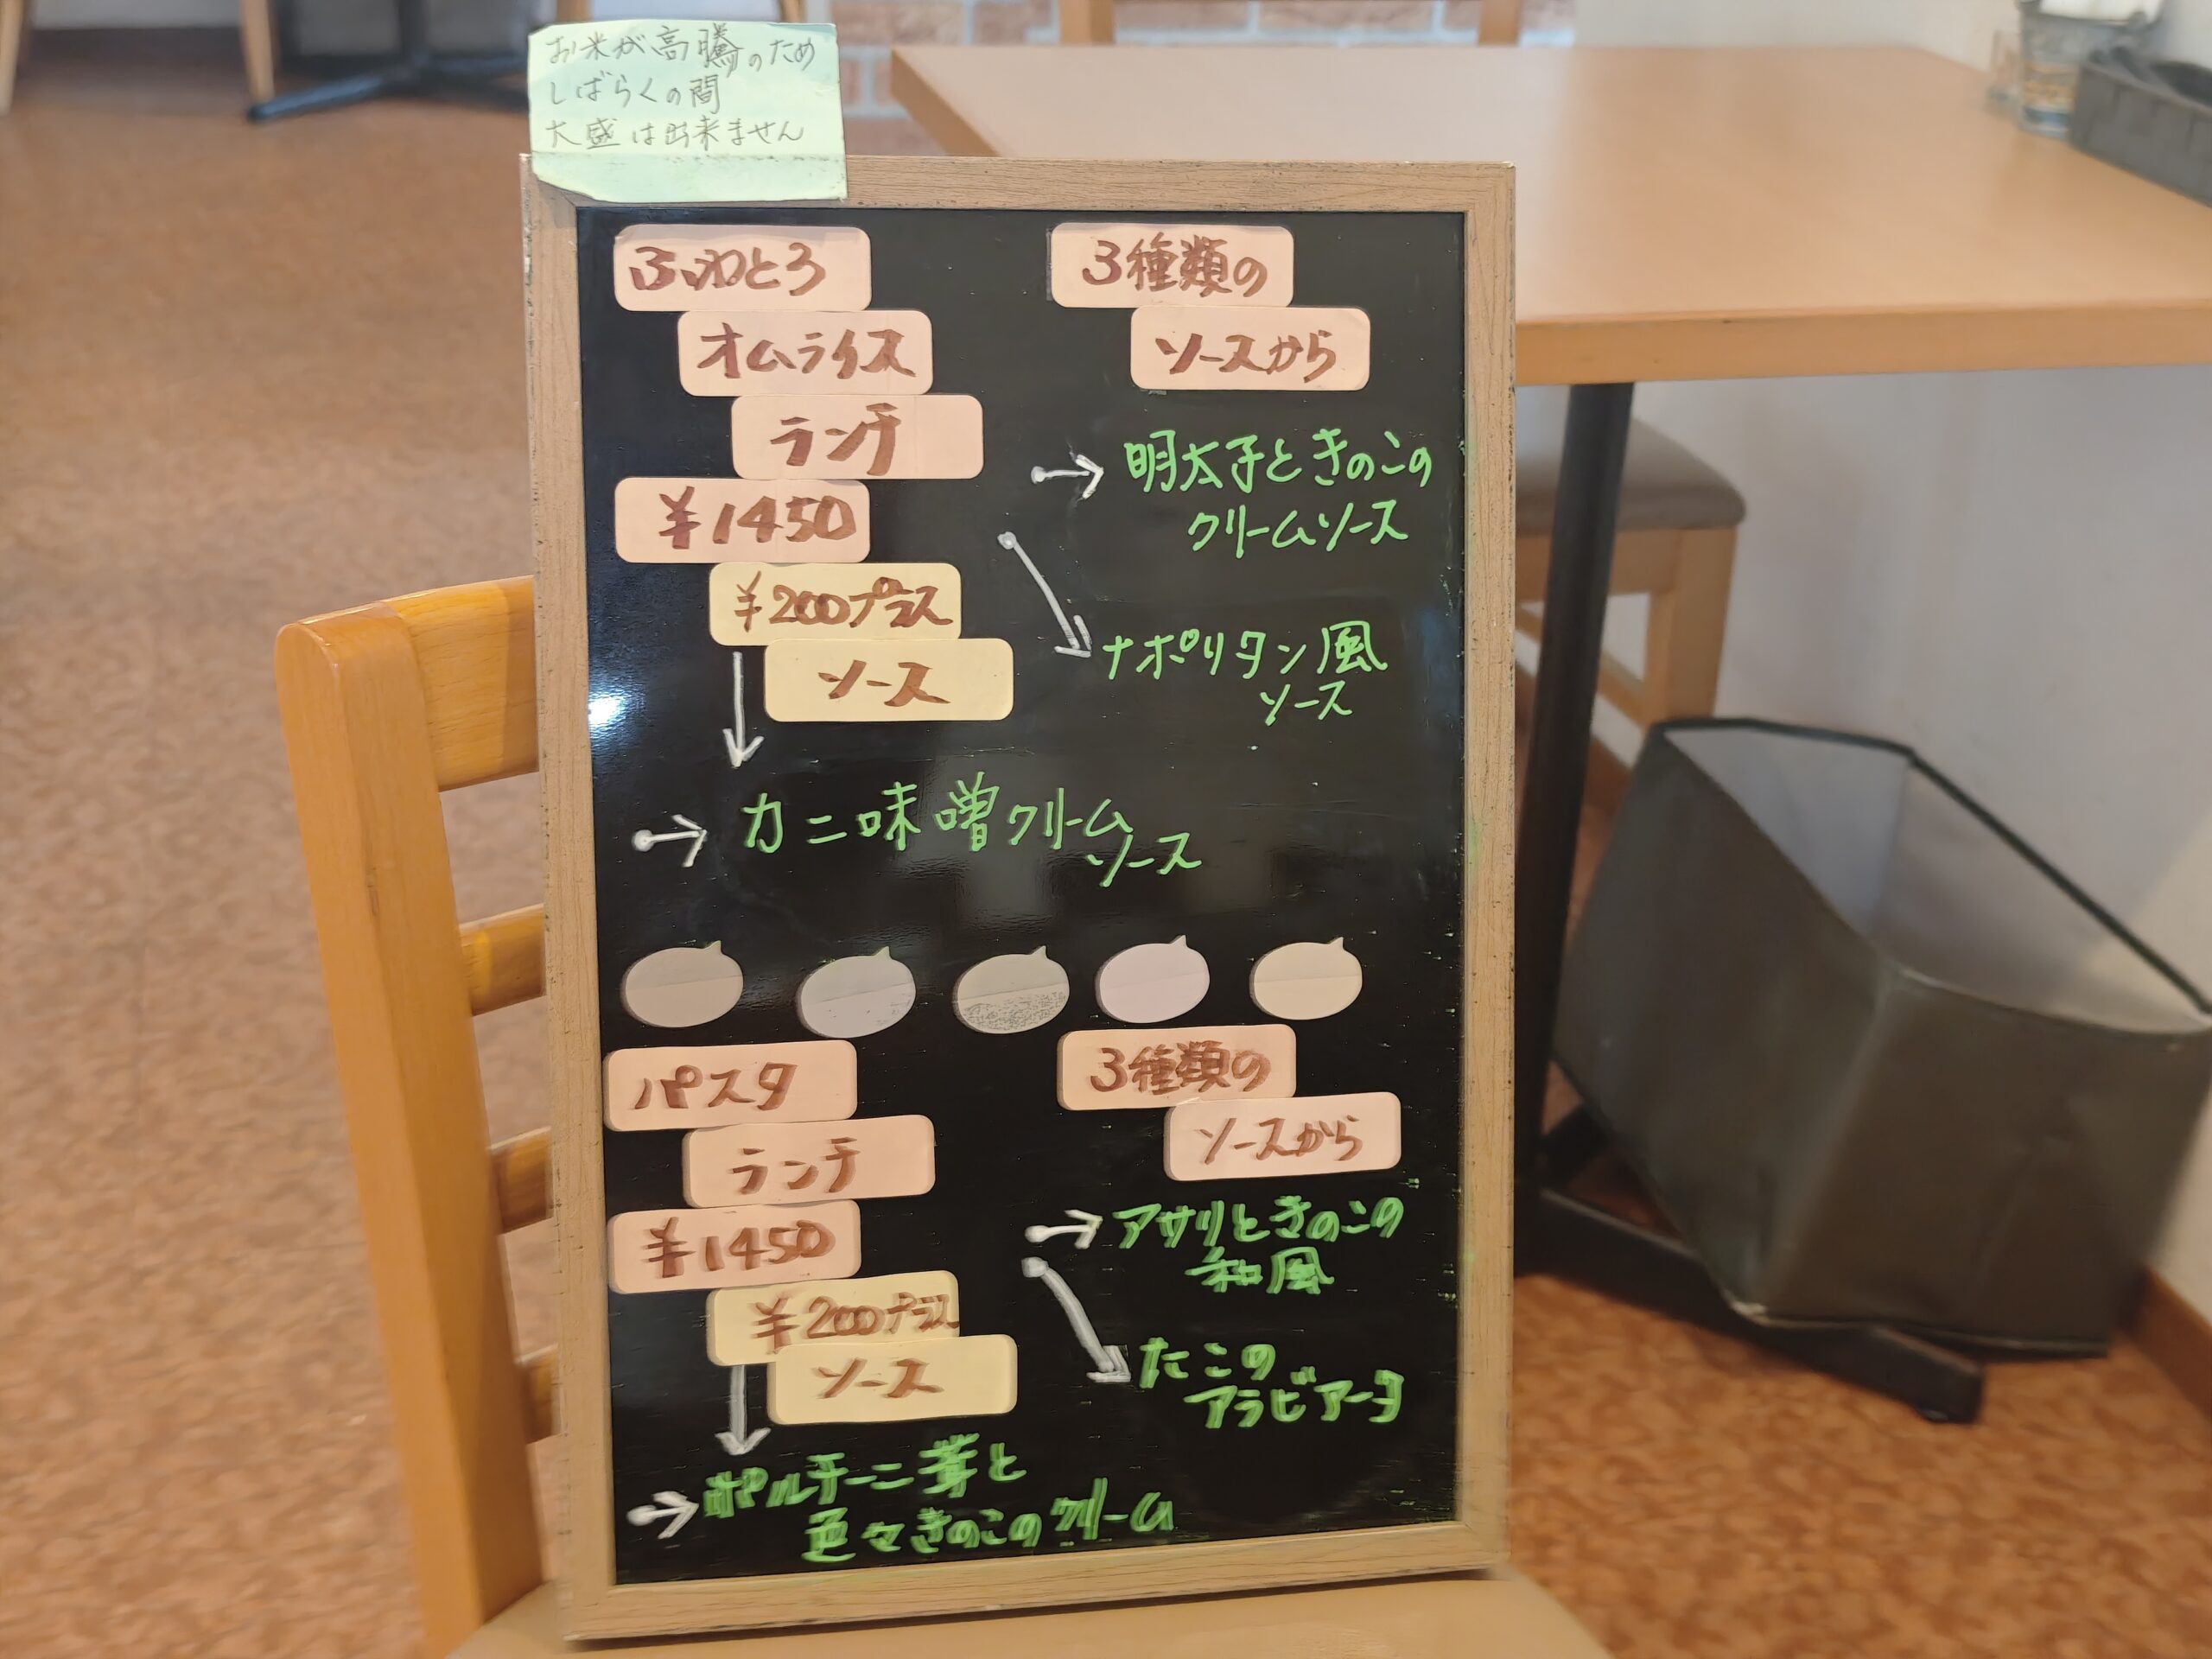 お米が高騰のため
しばらくの間
大盛は出来ません
ふわとろ
オムライス
ランチ
¥1450
¥200プラス
ソース
カニ味噌クリーム
ソース
3種類の
ソースから
明太子ときのこの
クリームソース
ナポリタン風
ソース
パスタ
ランチ
¥1450
¥200プラス
ソース
ポルチーニ茸と
色々きのこのクリーム
3種類の
ソースから
アサリときのこの
和風
たこの
アラビアータ